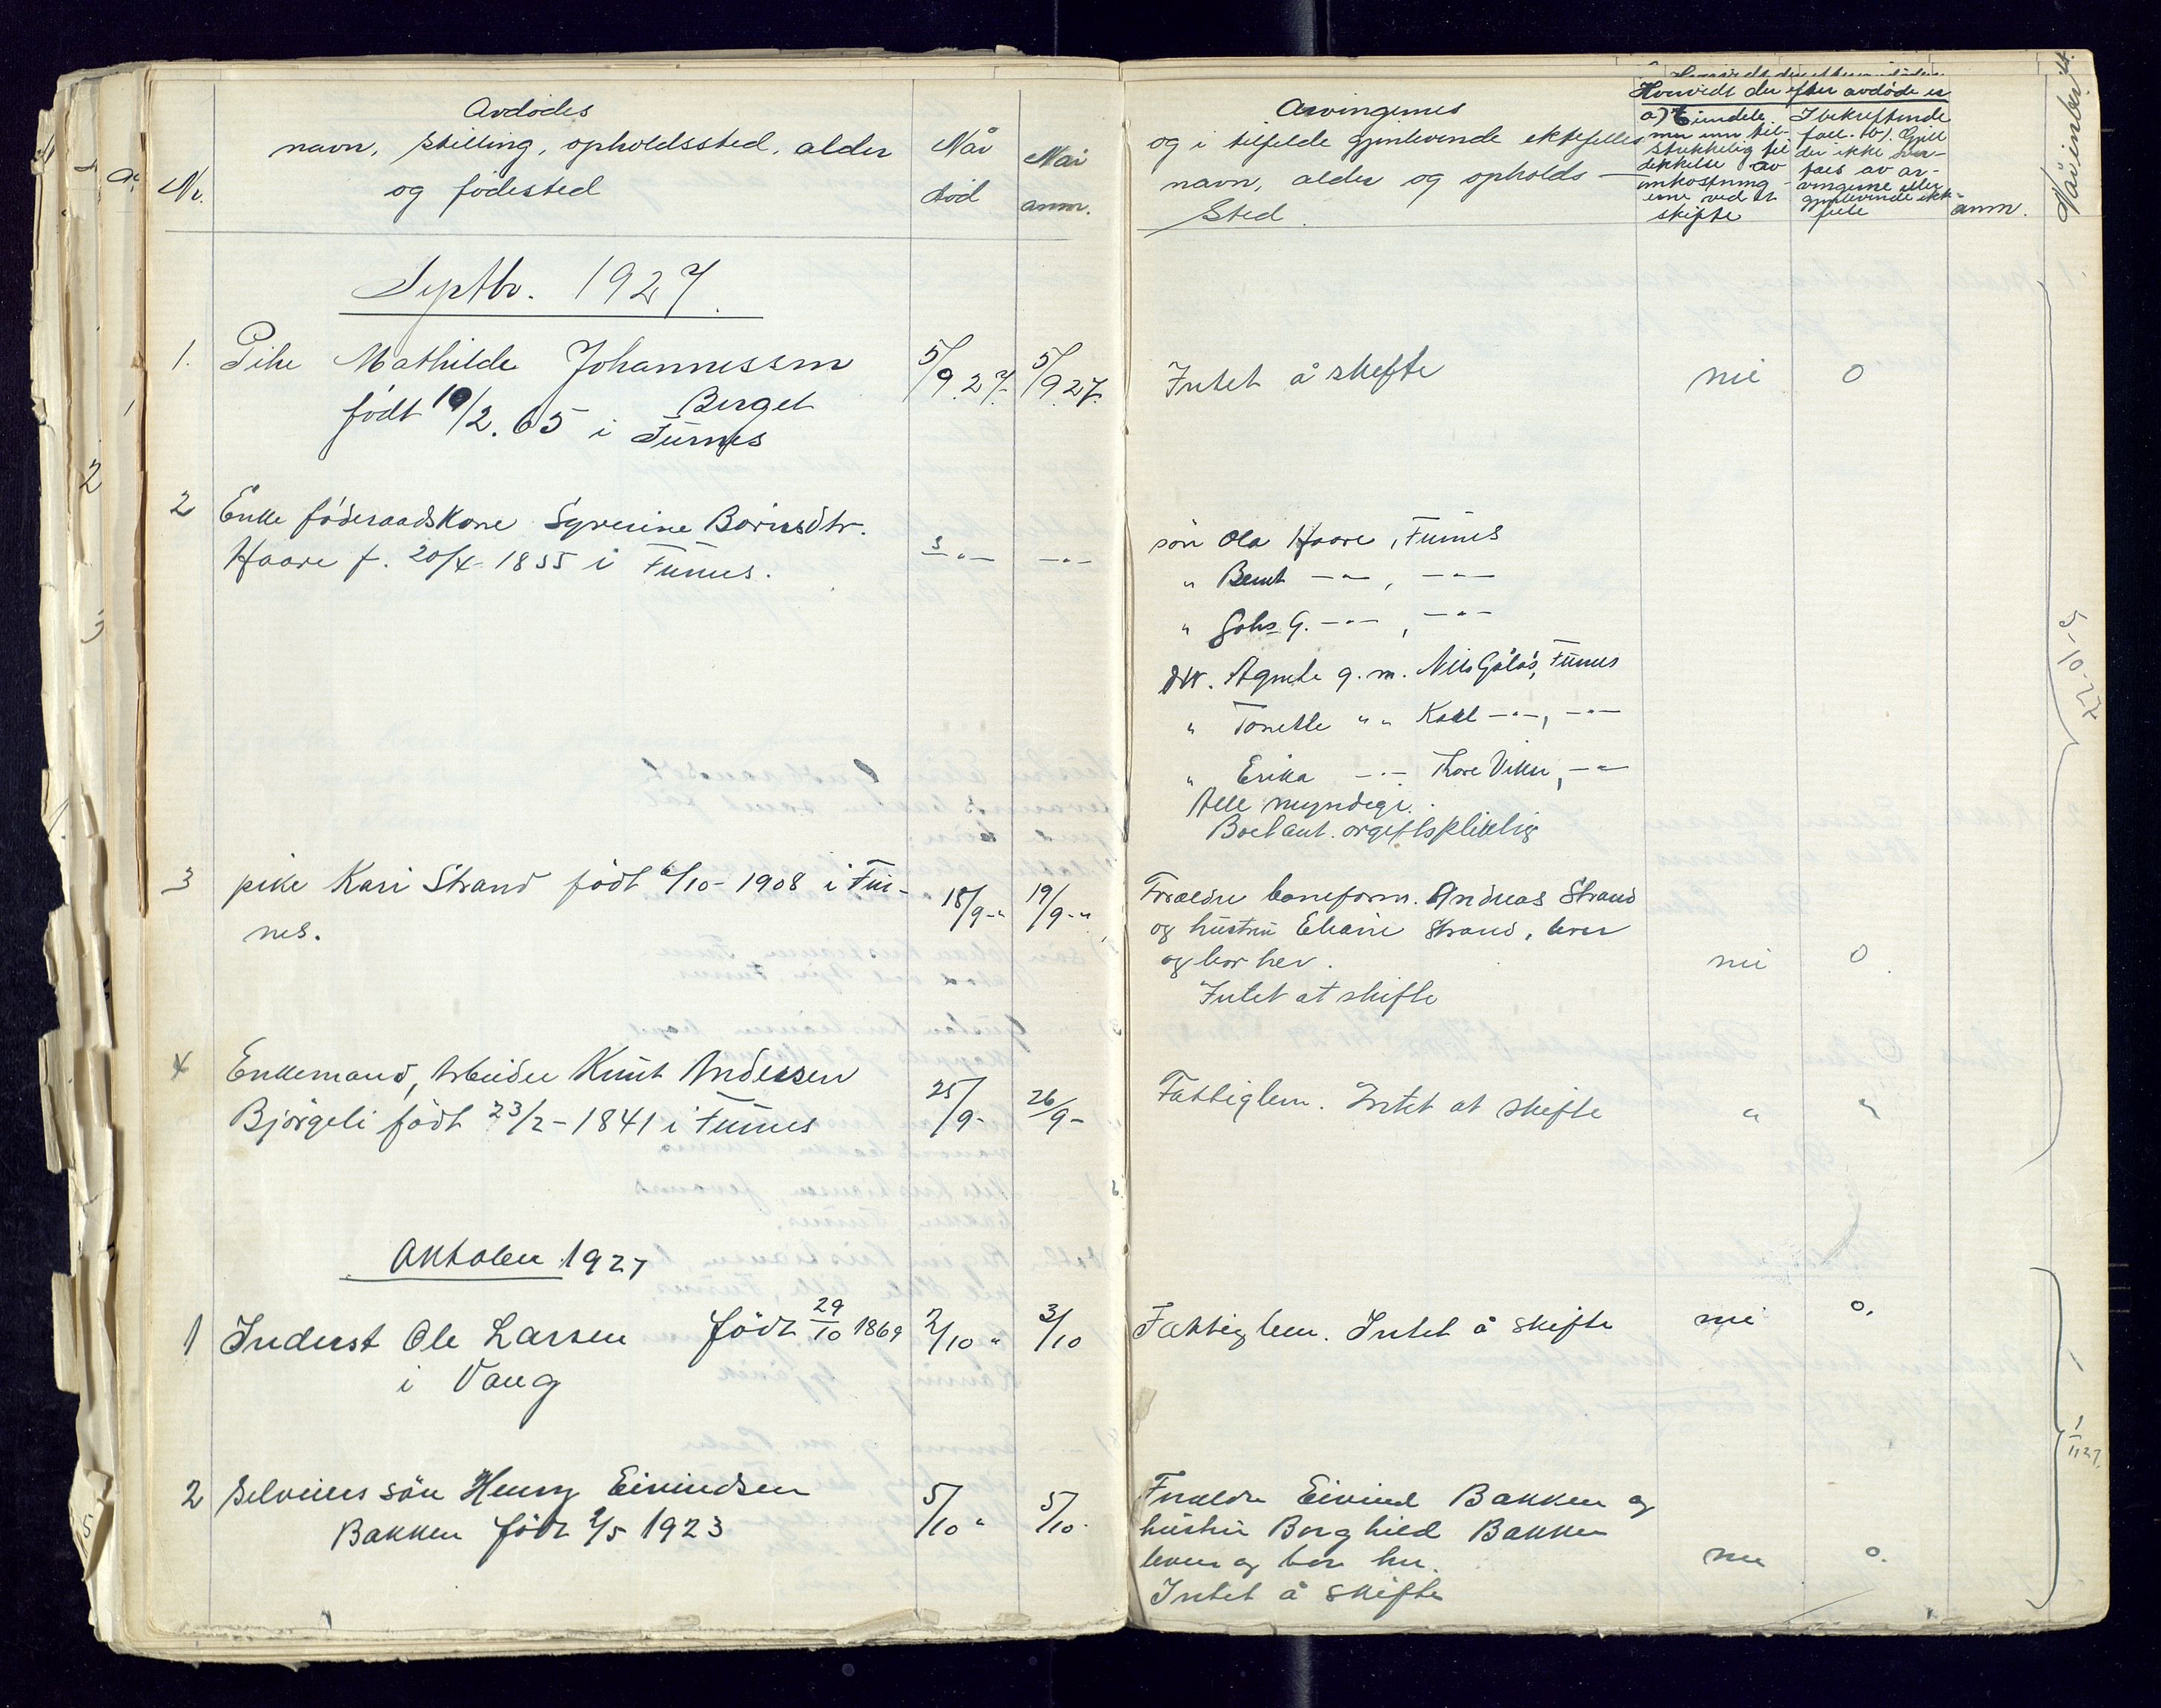 Avdødes
navn, stilling, opholdssted, alder
og fødested
Nr.
Når
død
Når
anm.
Arvingernes
og i tilfelde gjenlevende ektefelles
navn, alder og opholds-
sted.
Hvorvidt der efter avdøde er
a) Eiendele
mer enn til-
strekkelig til
dekkelse av
omkostning-
erne ved et
skifte
I bekreftende
fall. b) Gjeld
der ikke over-
taes av ar-
vingerne eller
gjenlevende ekte-
felle
anm.
Septbr. 1927.
1. Pike Mathilde Johannessen
Berget
født 10/2.65 i Furnes
5/9.27. 5/9.27.
Intet å skifte nei 0
2 Enke föderaadskone Syverine Bersvdtr.
Haare f. 20/4-1855 i Furnes.
3 -"- -"-
sön Ola Haare, Furnes
" Bernt -"-, -"-
" Johs G. -"-, -"-
dtr. Agnete g.m. Nils Gålås, Furnes
" Tonette " " Karl -"-, -"-
" Erika -"- Thore Viken, -"-
Alle myndige.
Boet ant. avgiftspliktig
3 pike Kari Strand født 6/10-1908 i Fur-
nes.
18/9-" 19/9-"
Foreldre baneform. Andreas Strand
og hustru Eliane Strand, lever
og bor her. nei 0
Intet at skifte
4 Enkemand, Arbeider Knut Andersen
Bjørgeli født 23/2-1841 i Furnes
25/9- 26/9-
Fattiglem. Intet at skifte " "
Oktober 1927
1 Inderst Ole Larsen födt 29/10 1869
i Vang
2/10 " 3/10
Fattiglem. Intet å skifte nei 0.
2 Selveiers sön Henry Eivindsen
Bakken födt 2/5 1923
5/10 " 5/10.
Foreldre Eivind Bakken og
hustru Borghild Bakken
lever og bor her. nei 0.
Intet å skifte